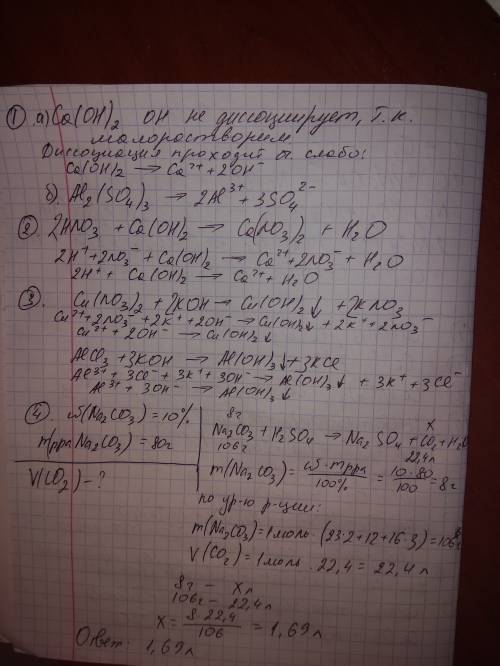 1 а) Ca(OH)2 он не диссоциирует, т.к.
малорастворим.
Диссоциация проходит оч. слабо:
Ca(OH)2 → Ca²⁺ + 2OH⁻
б). Al2(SO4)3 → 2Al³⁺ + 3SO4²⁻
2. 2HNO3 + Ca(OH)2 → Ca(NO3)2 + H2O
2H⁺ + 2NO3⁻ + Ca(OH)2 → Ca²⁺ + 2NO3⁻ + H2O
2H⁺ + Ca(OH)2 → Ca²⁺ + H2O
3. Cu(NO3)2 + 2KOH → Cu(OH)2↓ + 2KNO3
Cu²⁺ + 2NO3⁻ + 2K⁺ + 2OH⁻ → Cu(OH)2↓ + 2K⁺ + 2NO3⁻
Cu²⁺ + 2OH⁻ → Cu(OH)2↓
AlCl3 + 3KOH → Al(OH)3↓ + 3KCl
Al³⁺ + 3Cl⁻ + 3K⁺ + 3OH⁻ → Al(OH)3↓ + 3K⁺ + 3Cl⁻
Al³⁺ + 3OH⁻ → Al(OH)3↓
4. ω(Na2CO3) = 10%
m(р-ра Na2CO3) = 80г
V(CO2) – ?
8г x
Na2CO3 + H2SO4 → Na2SO4 + CO2 + H2O
106г 22,4л
m(Na2CO3) = ω · m р-ра / 100% = 10 · 80 / 100 = 8г
по ур-ю р-ции:
m(Na2CO3) = 1моль · (23·2+12+16·3) = 106г
V(CO2) = 1моль · 22,4 = 22,4л
8г – xл
106г – 22,4л
x = 8·22,4 / 106 = 1,69л
Ответ: 1,69л